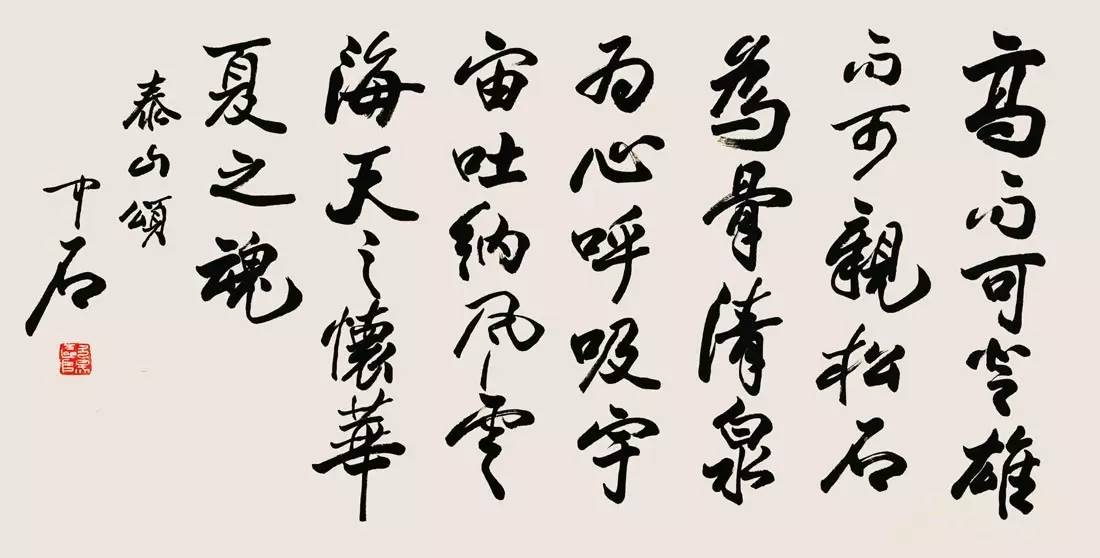 高而可登雄
而可親松石
為骨清泉
為心呼吸宇
宙吐納風雲
海天之懷華
夏之魂
泰山頌
中石